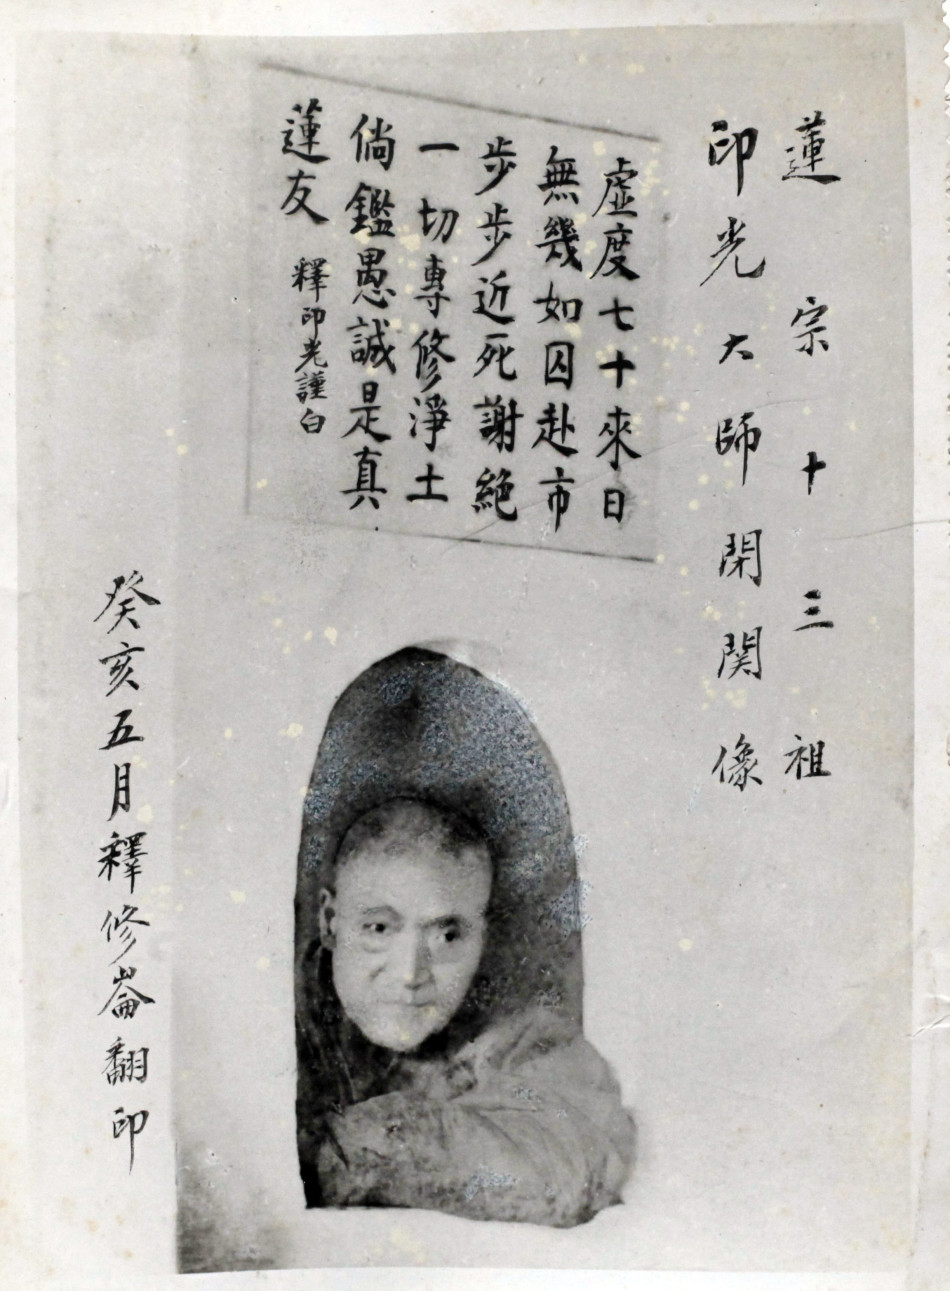 蓮宗十三祖
印光大師閉關像
虛度七十來日
無幾如囚赴市
步步近死謝絕
一切專修淨土
倘鑑愚誠是真
蓮友
釋印光謹白
癸亥五月釋修崙翻印